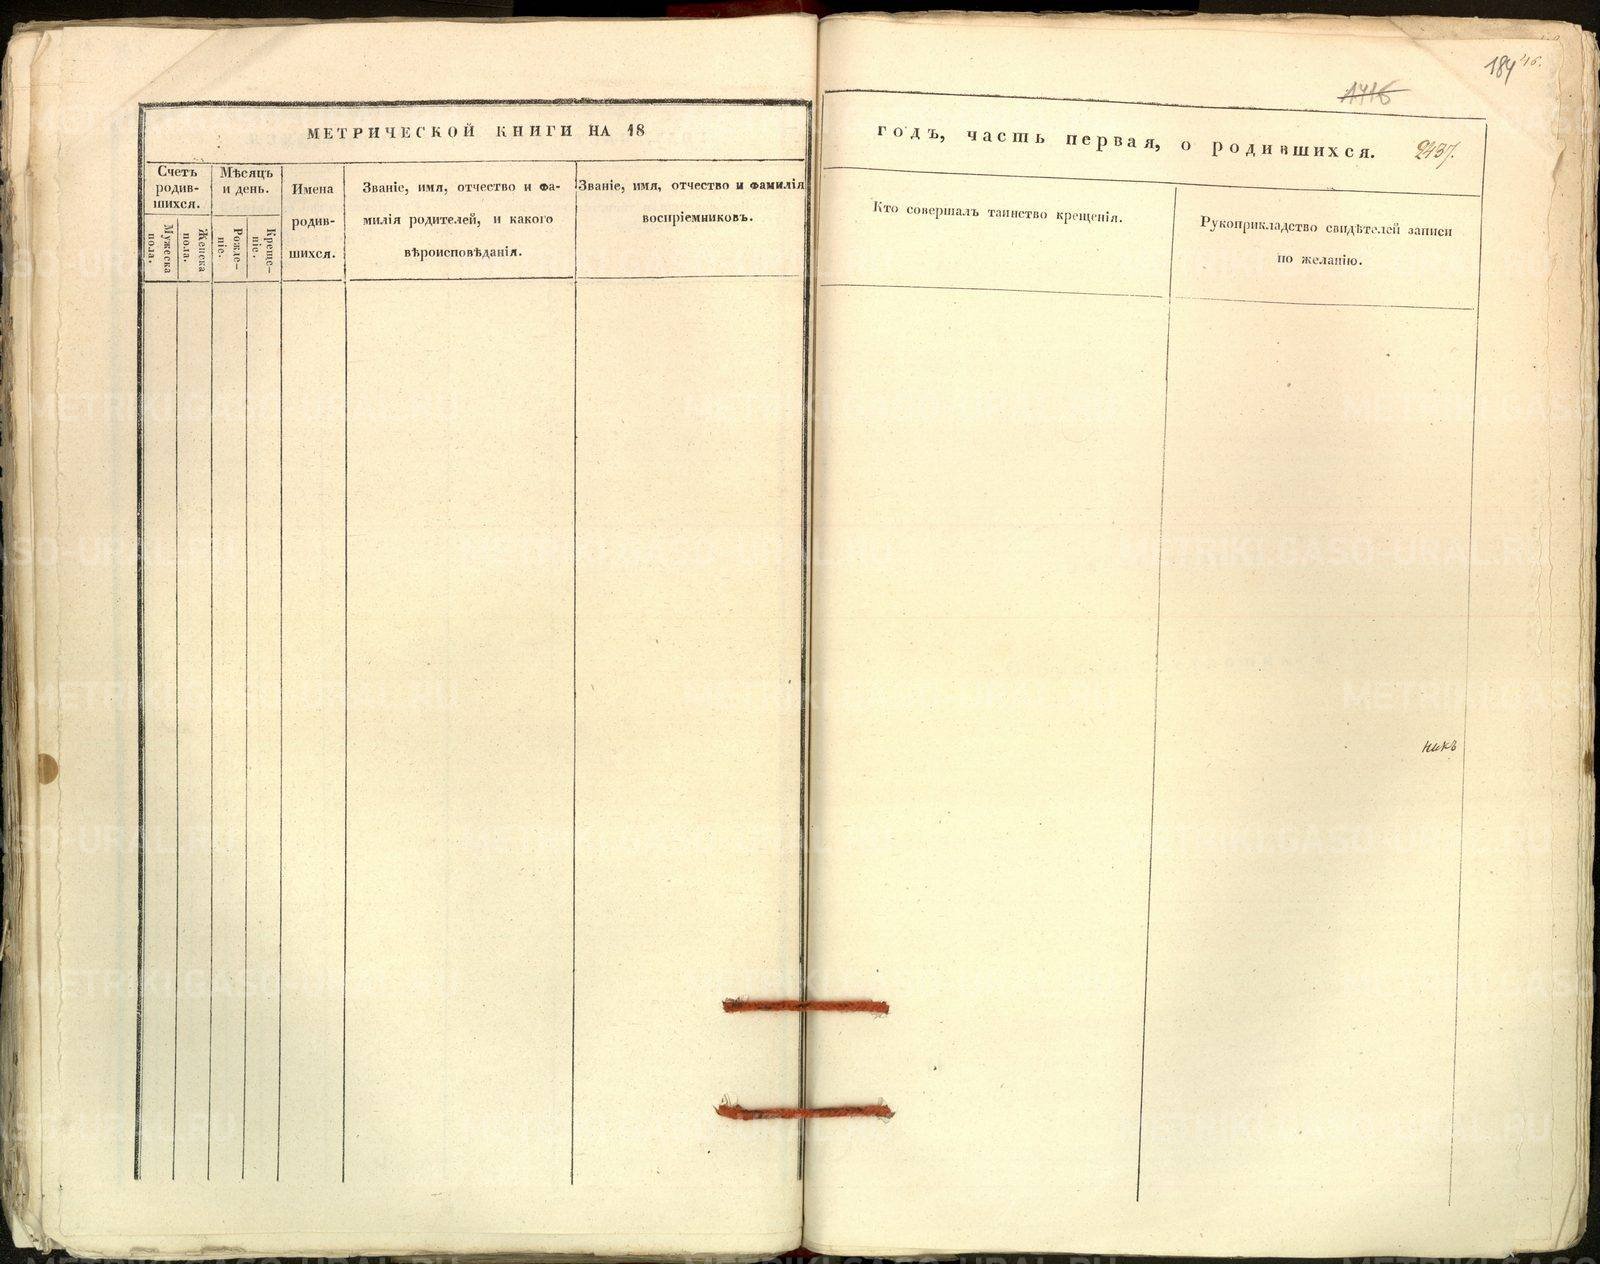 184 46.
1416
МЕТРИЧЕСКОЙ КНИГИ НА 18
годъ, часть первая, о родившихся. 2437.
Счетъ родив-шихся.
Мѣсяцъ и день.
Мужеска пола.
Женска пола.
Рожде-ніе.
Креще-ніе.
Имена
родив-
шихся.
Званіе, имя, отчество и фа-
милія родителей, и какого
вѣроисповѣданія.
Званіе, имя, отчество и фамилія
воспріемниковъ.
Кто совершалъ таинство крещенія.
Рукоприкладство свидѣтелей записи
по желанію.
никъ
METRIKI.GASO-URAL.RU